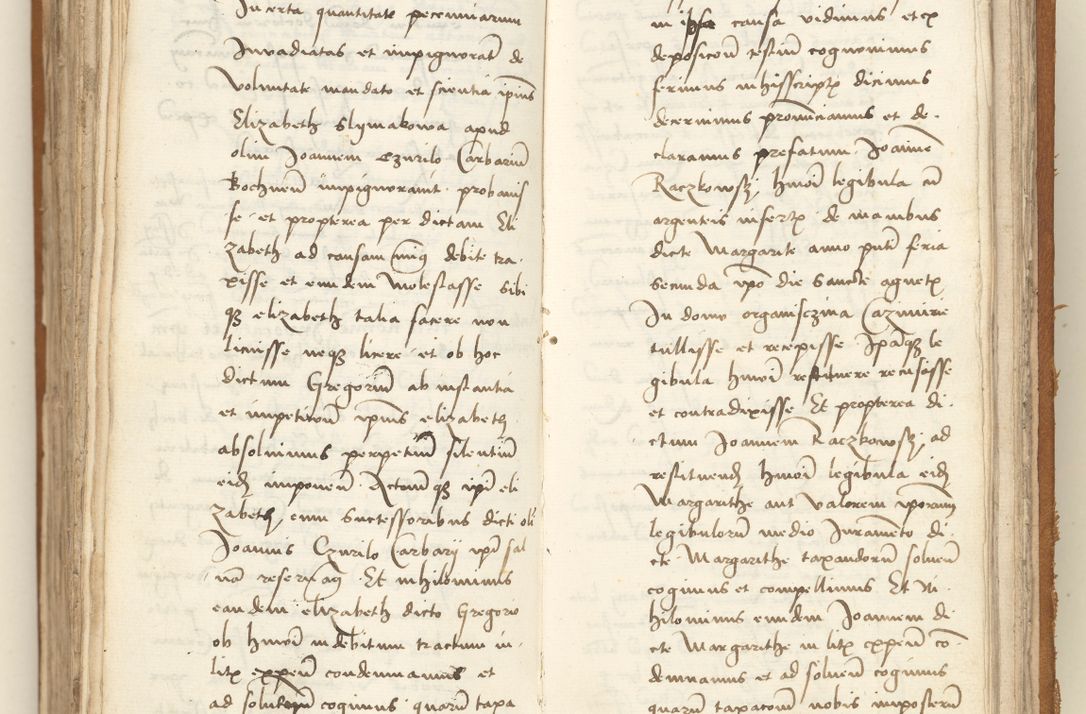 Incerta quantitate pecuniarum
Invadiatas et impignorat de
Voluntate mandato et scientia ipius
Elizabeth Slymakowa apud
olim Joannem Czurilo Carbariu
Bochnen impignoravit probavis
se et propterea per dictam Eli
zabeth ad causam minq debite tra
xisse et eundem molestasse sibi
qz elizabeth talia facere non
licuisse neqz licere et ob hoc
dictum Gregoriu ab instantia
et impeticoe ipius elizabeth
absolvimus perpetuu silentiu
eidz imponen Actionqz ipi eli
zabeth cum Successoribus dicti oli
Joannis Czurilo Carbarij ipi sal
vam reservaq Et nihilominus
eandem elizabeth dicto Gregorio
ob hmoi indebitum tractum in
litx expen condemnamus et
ad solvend cogimus quaru taxa
in ipsa causa vidimus et ex
deposicoe testiu cognovimus
ferimus in hisscriptx dicimus
decernimus pronunciamus et de
claramus prefatum Joanne
Raczkowskj hmoi legibula cu
argenteis insertx de manibus
dicte Margarite anno pnti feria
Secunda ipo die Sancte agnetx
In domo organisczina Cazimirie
tullisse et recepisse Ipaqz le
gibula hmoi restituere recusasse
et contradixisse Et propterea di
ctum Joannem Raczkowskj ad
restituendz hmoi legibula eidz
Margarithe aut valorem iporam
legibuloru medio Juramento di
cte Margarithe taxandoru solven
cogimus et compellimus Et Ni
hilominus eundem Joannem di
cte Margarithe in litx expen co
demnamus et ad solven cogimus
quaru taxacoem nobis imposteru